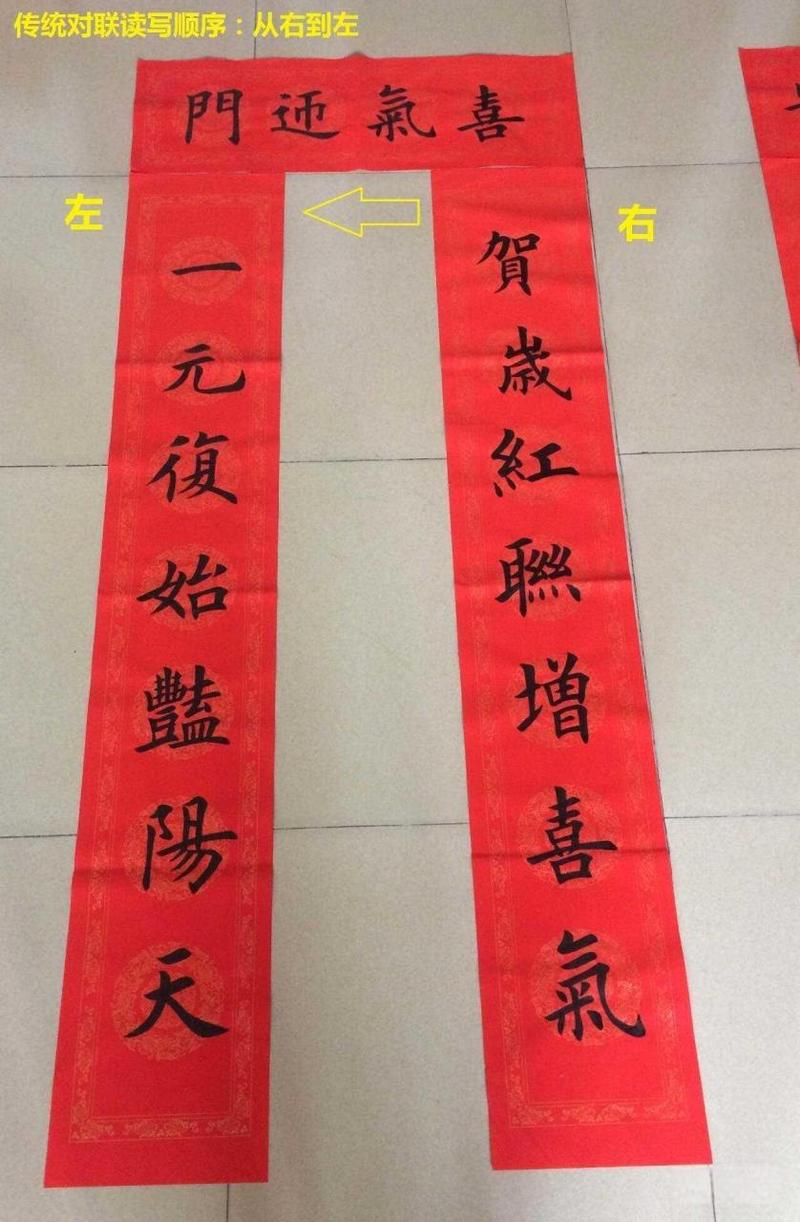 传统对联读写顺序：从右到左
喜氣迎門
右
左
賀歲紅聯增喜氣
一元復始豔陽天